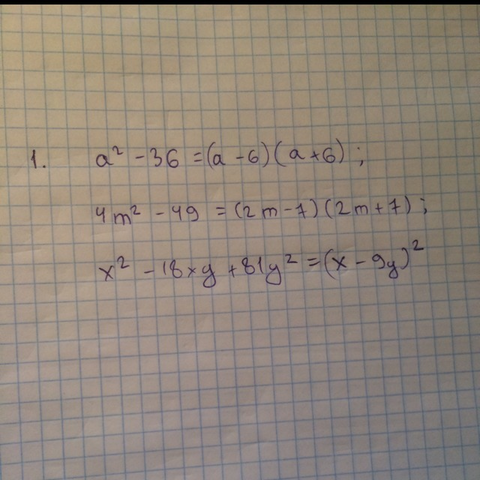 1. a² - 36 = (a - 6)(a + 6);
4m² - 49 = (2m - 7)(2m + 7);
x² - 18xy + 81y² = (x - 9y)²